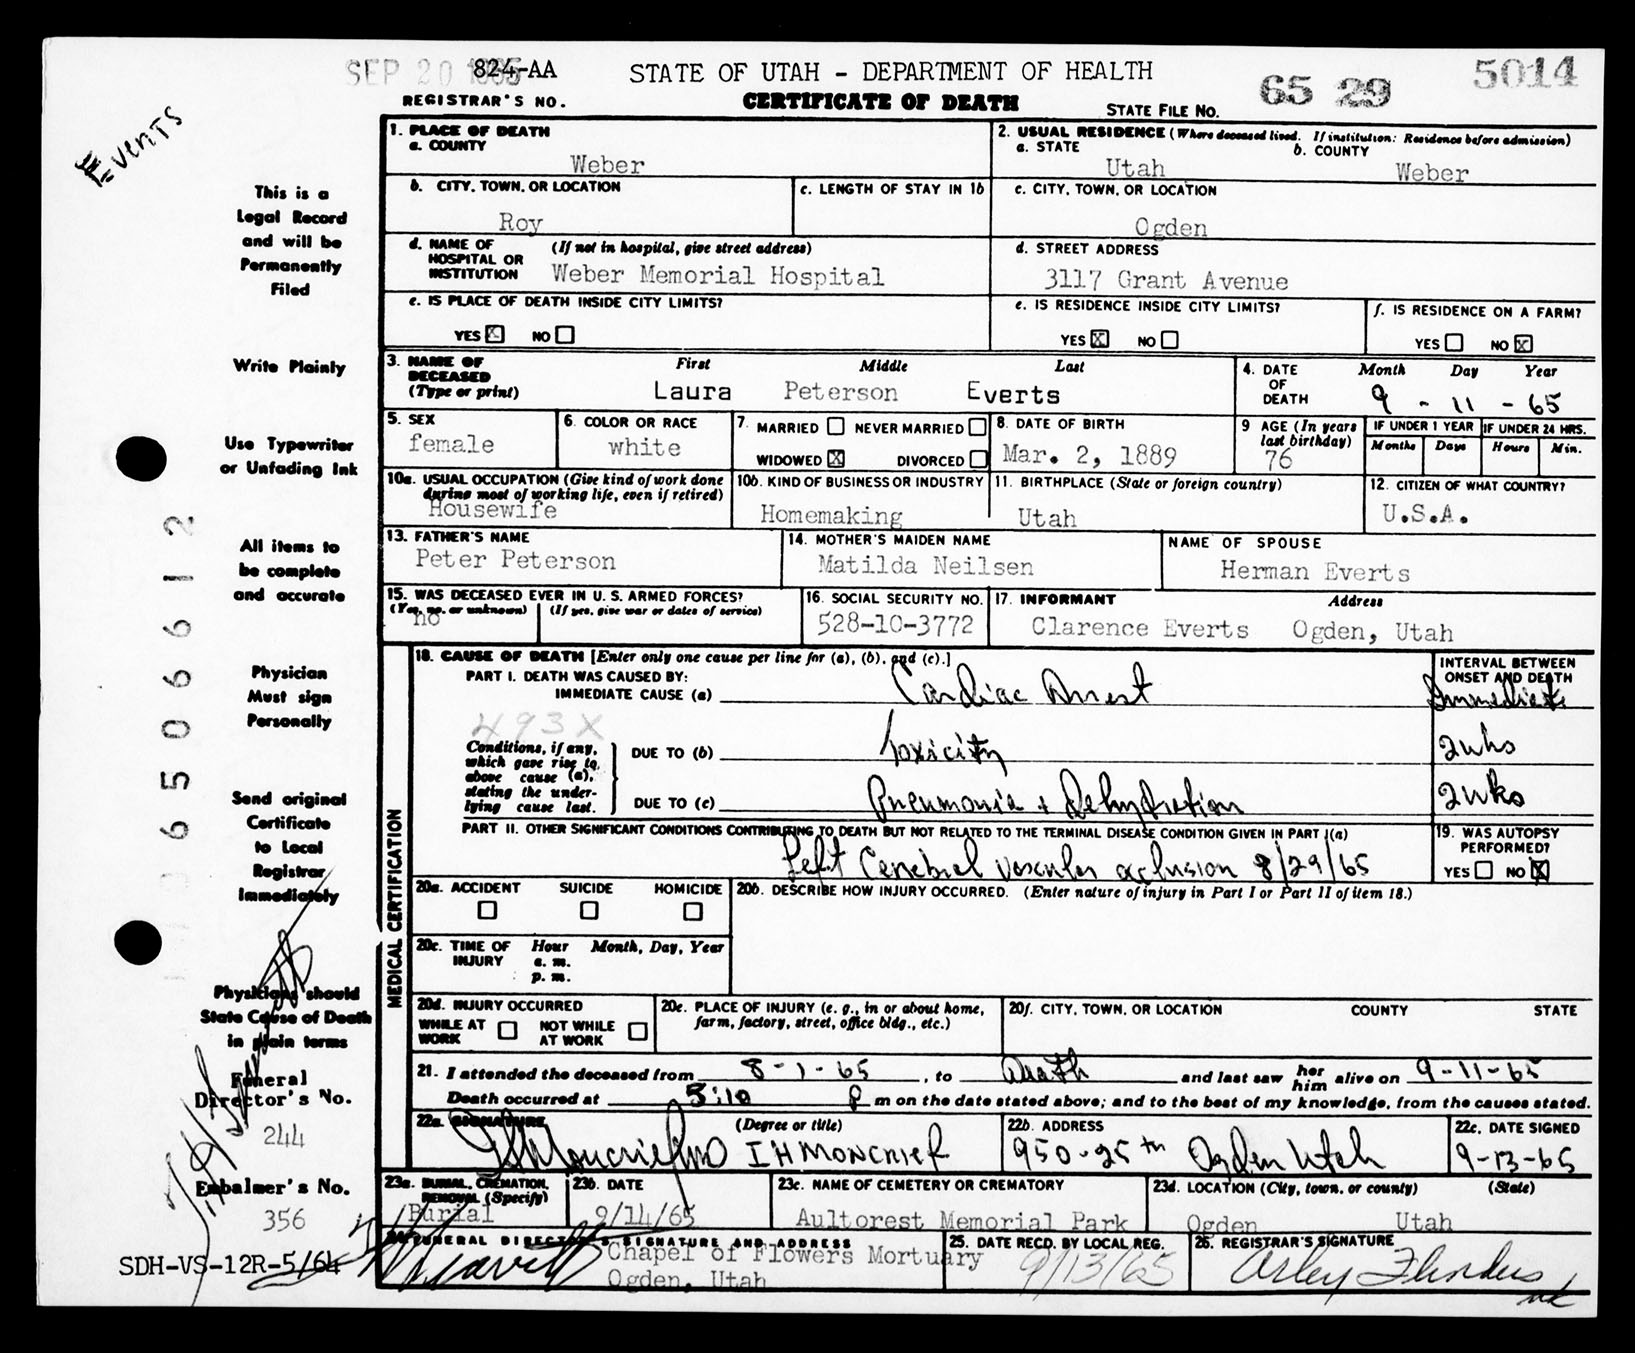 Events
SEP 20 1965 824-AA
REGISTRAR'S NO.
STATE OF UTAH - DEPARTMENT OF HEALTH
CERTIFICATE OF DEATH
STATE FILE NO. 65 29 5014
This is a
Legal Record
and will be
Permanently
Filed
Write Plainly
Use Typewriter
or Unfading Ink
All items to
be complete
and accurate
Physician
Must sign
Personally
Send original
Certificate
to Local
Registrar
Immediately
Physicians should
State Cause of Death
in plain terms
Funeral
Director's No.
244
Embalmer's No.
356
SDH-VS-12R-5/64
6506612
1. PLACE OF DEATH
a. COUNTY
Weber
2. USUAL RESIDENCE (Where deceased lived. If institution: Residence before admission)
a. STATE b. COUNTY
Utah Weber
b. CITY, TOWN, OR LOCATION
Roy
c. LENGTH OF STAY IN 1b
c. CITY, TOWN, OR LOCATION
Ogden
d. NAME OF HOSPITAL OR INSTITUTION (If not in hospital, give street address)
Weber Memorial Hospital
d. STREET ADDRESS
3117 Grant Avenue
e. IS PLACE OF DEATH INSIDE CITY LIMITS?
YES X NO
e. IS RESIDENCE INSIDE CITY LIMITS?
YES X NO
f. IS RESIDENCE ON A FARM?
YES NO X
3. NAME OF DECEASED (Type or print)
First Middle Last
Laura Peterson Everts
4. DATE OF DEATH
Month Day Year
9 - 11 - 65
5. SEX
female
6. COLOR OR RACE
white
7. MARRIED NEVER MARRIED
WIDOWED X DIVORCED
8. DATE OF BIRTH
Mar. 2, 1889
9 AGE (In years last birthday)
76
IF UNDER 1 YEAR IF UNDER 24 HRS.
Months Days Hours Min.
10a. USUAL OCCUPATION (Give kind of work done
during most of working life, even if retired)
Housewife
10b. KIND OF BUSINESS OR INDUSTRY
Homemaking
11. BIRTHPLACE (State or foreign country)
Utah
12. CITIZEN OF WHAT COUNTRY?
U.S.A.
13. FATHER'S NAME
Peter Peterson
14. MOTHER'S MAIDEN NAME
Matilda Neilsen
NAME OF SPOUSE
Herman Everts
15. WAS DECEASED EVER IN U. S. ARMED FORCES?
(Yes, no, or unknown) (If yes, give war or dates of service)
no
16. SOCIAL SECURITY NO.
528-10-3772
17. INFORMANT Address
Clarence Everts Ogden, Utah
MEDICAL CERTIFICATION
18. CAUSE OF DEATH [Enter only one cause per line for (a), (b), and (c).]
PART I. DEATH WAS CAUSED BY:
IMMEDIATE CAUSE (a) Cardiac Arrest
INTERVAL BETWEEN
ONSET AND DEATH
Immediate
493X
Conditions, if any,
which gave rise to
above cause (a),
stating the under-
lying cause last.
DUE TO (b) Toxicity 2wks
DUE TO (c) Pneumonia + Dehydration 2wks
PART II. OTHER SIGNIFICANT CONDITIONS CONTRIBUTING TO DEATH BUT NOT RELATED TO THE TERMINAL DISEASE CONDITION GIVEN IN PART I(a)
Left Cerebral Vascular occlusion 8/29/65
19. WAS AUTOPSY
PERFORMED?
YES NO X
20a. ACCIDENT SUICIDE HOMICIDE
20b. DESCRIBE HOW INJURY OCCURRED. (Enter nature of injury in Part I or Part II of item 18.)
20c. TIME OF INJURY Hour Month, Day, Year
a. m.
p. m.
20d. INJURY OCCURRED
WHILE AT WORK NOT WHILE AT WORK
20e. PLACE OF INJURY (e. g., in or about home,
farm, factory, street, office bldg., etc.)
20f. CITY, TOWN, OR LOCATION COUNTY STATE
21. I attended the deceased from 8-1-65, to Death and last saw her him alive on 9-11-65
Death occurred at 5:10 P m on the date stated above; and to the best of my knowledge, from the causes stated.
22a. SIGNATURE (Degree or title)
IHMoncrief MD I H MONCRIEF
22b. ADDRESS
950-25th Ogden Utah
22c. DATE SIGNED
9-13-65
23a. BURIAL, CREMATION,
REMOVAL (Specify)
Burial
23b. DATE
9/14/65
23c. NAME OF CEMETERY OR CREMATORY
Aultorest Memorial Park
23d. LOCATION (City, town, or county) (State)
Ogden Utah
24. FUNERAL DIRECTOR'S SIGNATURE AND ADDRESS
Chapel of Flowers Mortuary
Ogden, Utah
25. DATE RECD. BY LOCAL REG.
9/13/65
26. REGISTRAR'S SIGNATURE
Arley Flinders